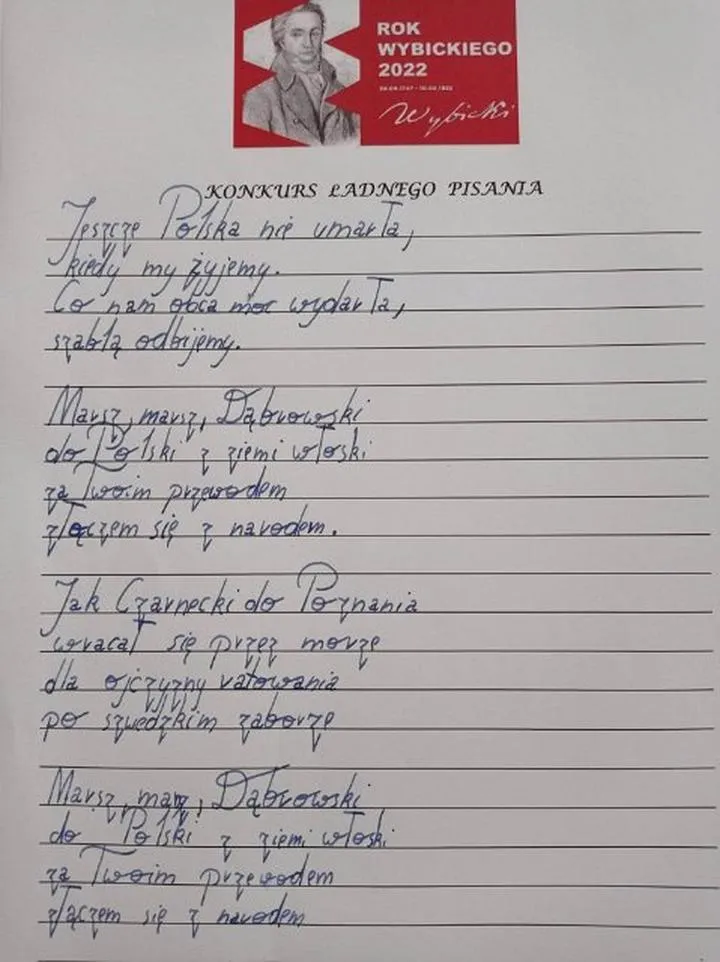 ROK
WYBICKIEGO
2022
Wybicki
KONKURS ŁADNEGO PISANIA
Jeszcze Polska nie umarła,
kiedy my żyjemy.
Co nam obca moc wydarła,
szablą odbijemy.
Marsz, marsz, Dąbrowski
do Polski z ziemi włoski
za Twoim przewodem
złączem się z narodem.
Jak Czarnecki do Poznania
wracał się przez morze
dla ojczyzny ratowania
po szwedzkim zaborze
Marsz, marz, Dąbrowski
do Polski z ziemi włoski
za Twoim przewodem
złączem się z narodem